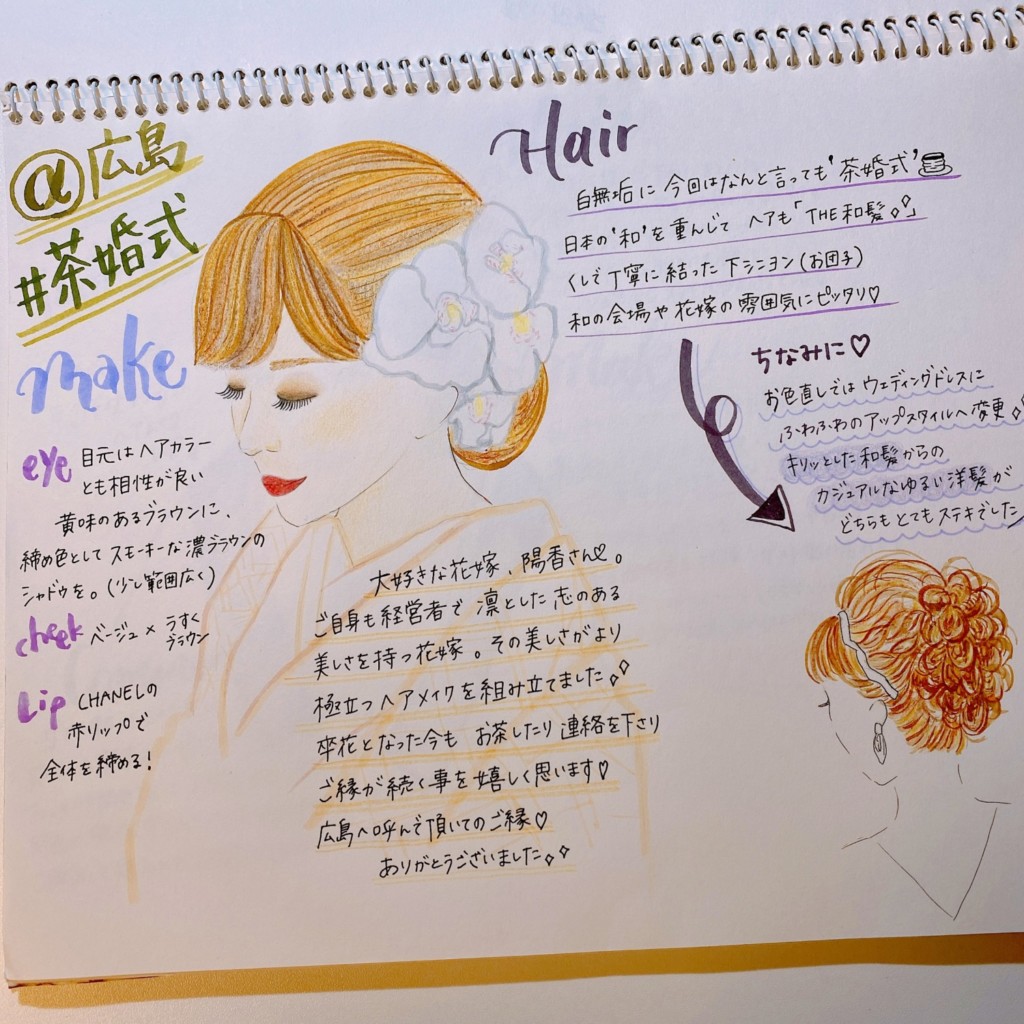 @広島
#茶婚式
make
eye 目元はヘアカラー
とも相性が良い
黄味のあるブラウンに、
締め色としてスモーキーな濃ブラウンの
シャドウを。(少し範囲広く)
cheek ベージュ×うすく
ブラウン
Lip CHANELの
赤リップで
全体を締める!
Hair
白無垢に今回はなんと言っても'茶婚式'
日本の'和'を重んじて ヘアも「THE和髪」
くしで丁寧に結った下シニヨン(お団子)
和の会場や花嫁の雰囲気にピッタリ♡
ちなみに♡
お色直しではウェディングドレスに
ふわふわのアップスタイルへ変更
キリッとした和髪からの
カジュアルなゆるい洋髪が
どちらもとてもステキでした
大好きな花嫁、陽香さん♡。
ご自身も経営者で凛とした志のある
美しさを持つ花嫁。その美しさがより
極立つヘアメイクを組み立てました
卒花となった今も お茶したり連絡を下さり
ご縁が続く事を嬉しく思います♡
広島へ呼んで頂いてのご縁♡
ありがとうございました。